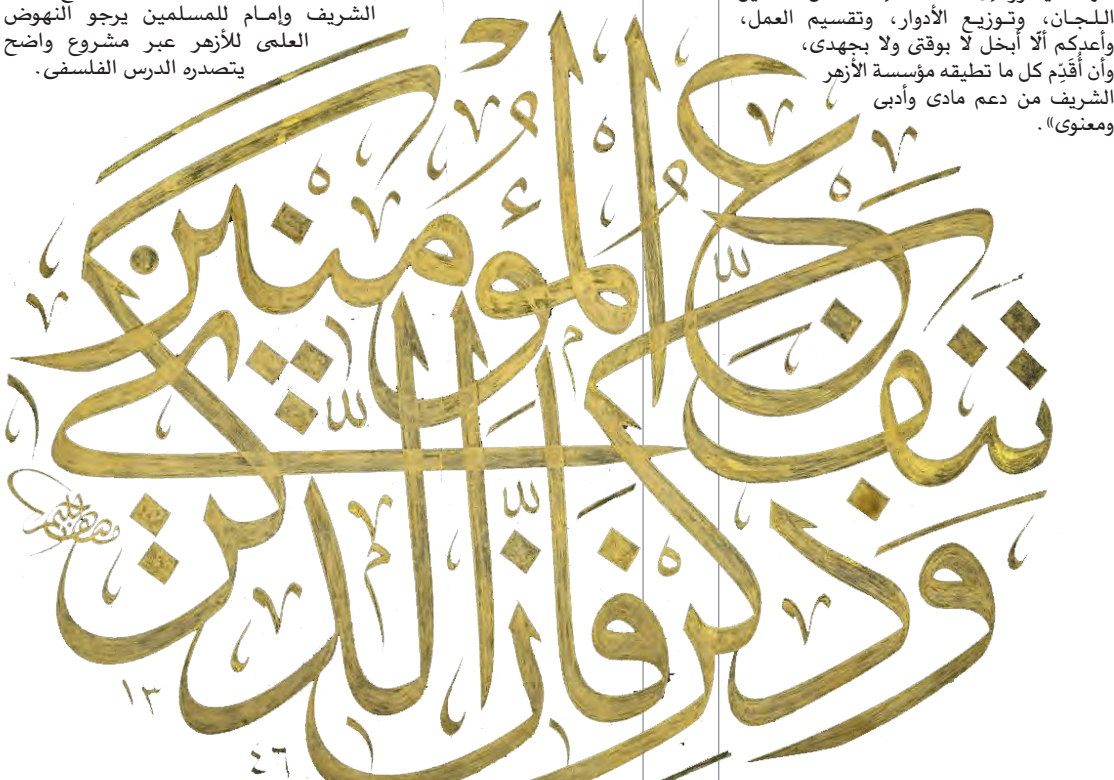 اللجان، وتوزيع الأدوار، وتقسيم العمل،
وأعدكم ألّا أبخل لا بوقتى ولا بجهدى،
وأن أُقَدِّم كل ما تطيقه مؤسسة الأزهر
الشريف من دعم مادى وأدبى
ومعنوى».
الشريف وإمام للمسلمين يرجو النهوض
العلمى للأزهر عبر مشروع واضح
يتصدره الدرس الفلسفى.
وَذَكِّرْ فَاِنَّ الذِّكْرَى
تَنْفَعُ الْمُؤْمِنِينَ
١٣
٤٦